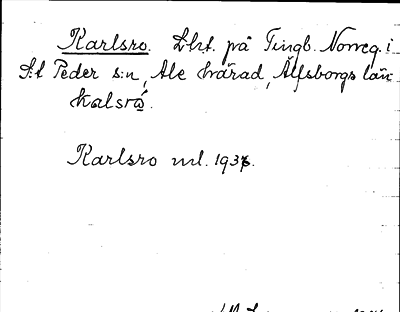 Karlsro. Lht. på Tingb. Norreg. i
S:t Peder s:n, Ale härad, Älfsborgs län
Kalsrå.
Karlsro ml. 1936.